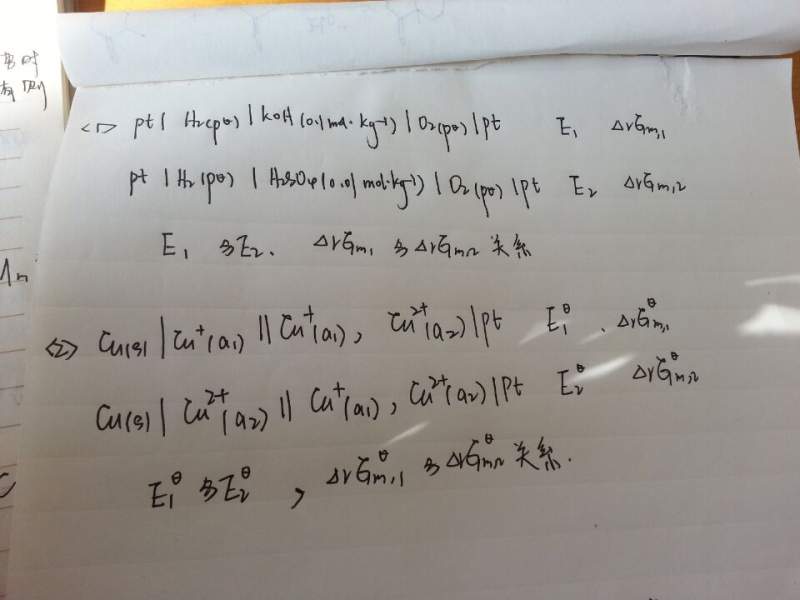 有时
有则
<1> pt | H₂(pθ) | KOH(0.1mol·kg⁻¹) | O₂(pθ) | pt E₁ ΔrGm,1
pt | H₂(pθ) | H₂SO₄(0.01mol·kg⁻¹) | O₂(pθ) | pt E₂ ΔrGm,2
E₁ 与E₂、 ΔrGm,1 与ΔrGm,2 关系
<2> Cu(s) | Cu⁺(a₁) || Cu⁺(a₁), Cu²⁺(a₂) | pt E₁θ 、ΔrGm,1θ
Cu(s) | Cu²⁺(a₂) || Cu⁺(a₁), Cu²⁺(a₂) | Pt E₂θ ΔrGm,2θ
E₁θ 与E₂θ , ΔrGm,1θ 与ΔrGm,2θ 关系.